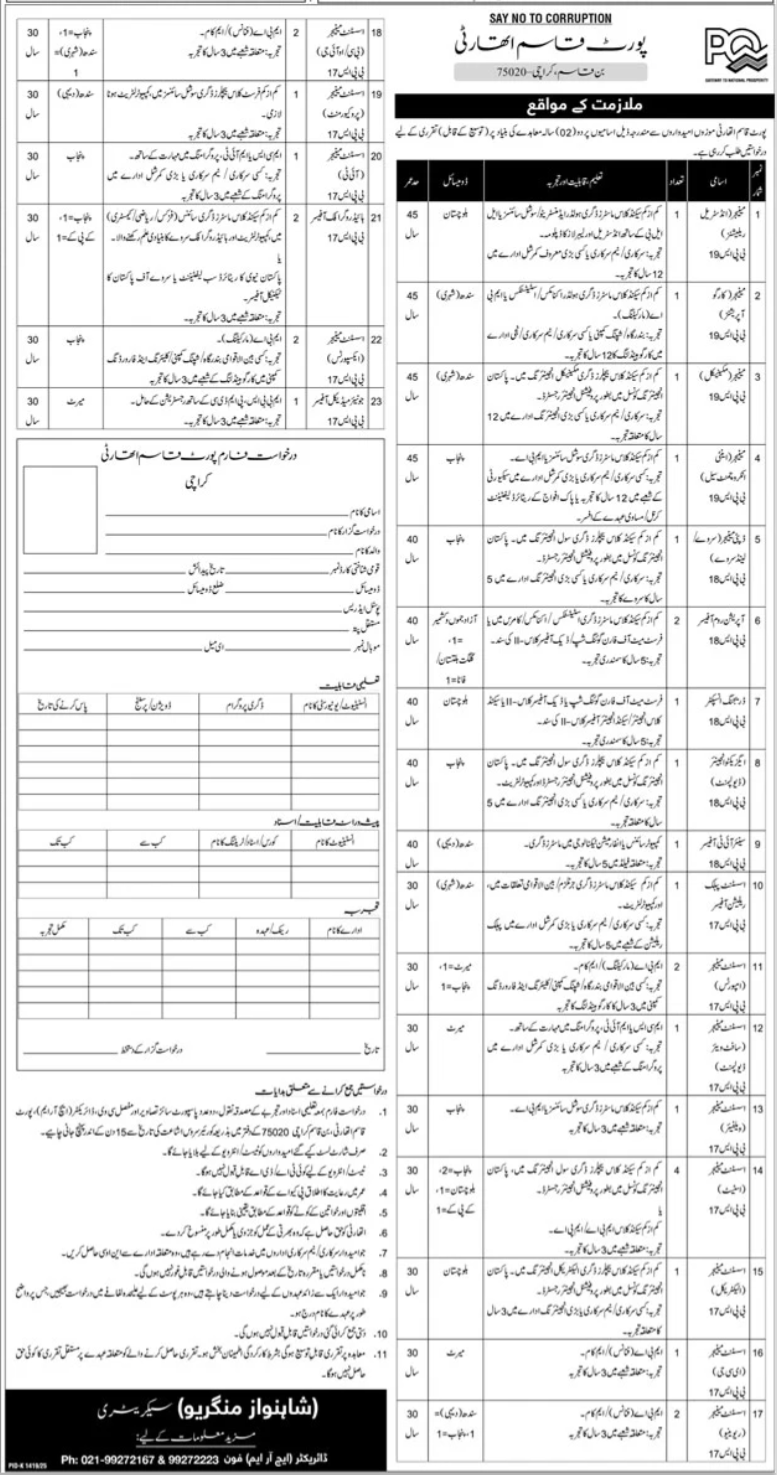 SAY NO TO CORRUPTION
پورٹ قاسم اتھارٹی
بن قاسم، کراچی-75020
PQA
GATEWAY TO NATIONAL PROSPERITY
ملازمت کے مواقع
پورٹ قاسم اتھارٹی موزوں امیدواروں سے مندرجہ ذیل اسامیوں پر دو (02) سالہ معاہدے کی بنیاد پر (توسیع کے قابل) تقرری کے لیے
درخواستیں طلب کر رہی ہے۔
نمبر شمار اسامی تعداد تعلیم، قابلیت اور تجربہ ڈومیسائل حد عمر
1 مینیجر (انڈسٹریل 1 بلوچستان 45
ریلیشنز) سال
بی پی ایس 19
12 سال کا تجربہ۔
2 مینیجر (کارگو 1 سندھ (شہری) 45
آپریشنز) اے (مارکیٹنگ)۔ سال
بی پی ایس 19
میں کارگو ہینڈلنگ کا 12 سال کا تجربہ۔
3 مینیجر (مکینیکل) 1 کم از کم سیکنڈ کلاس بیچلرز ڈگری مکینیکل انجینئرنگ میں۔ پاکستان سندھ (شہری) 45
بی پی ایس 19 انجینئرنگ کونسل میں بطور پروفیشنل انجینئر رجسٹرڈ۔ سال
تجربہ: سرکاری/ نیم سرکاری یا کسی بڑی انجینئرنگ ادارے میں 12
سال کا متعلقہ تجربہ۔
4 مینیجر (اینٹی 1 کم از کم سیکنڈ کلاس ماسٹرز ڈگری سوشل سائنسز یا ایم بی اے۔ پنجاب 45
انکروچمنٹ سیل) تجربہ: کسی سرکاری/ نیم سرکاری یا بڑی کمرشل ادارے میں سیکیورٹی سال
بی پی ایس 19 کے شعبے میں 12 سال کا تجربہ یا پاک افواج کے ریٹائرڈ لیفٹیننٹ
کرنل/ مساوی عہدے کے افسر۔
5 ڈپٹی مینیجر (سروے/ 1 کم از کم سیکنڈ کلاس بیچلرز ڈگری سول انجینئرنگ میں۔ پاکستان پنجاب 40
لینڈ سروے) انجینئرنگ کونسل میں بطور پروفیشنل انجینئر رجسٹرڈ۔ سال
بی پی ایس 18 تجربہ: سرکاری/ نیم سرکاری یا کسی بڑی انجینئرنگ ادارے میں 5
سال کا سروے کا تجربہ۔
6 آپریشن روم آفیسر 2 کم از کم سیکنڈ کلاس ماسٹرز ڈگری آزاد جموں و کشمیر 40
بی پی ایس 18 =1، سال
تجربہ: 5 سال کا سمندری تجربہ۔ گلگت بلتستان/
فاٹا=1
7 ڈریجنگ انسپکٹر 1 بلوچستان 40
بی پی ایس 18 سال
تجربہ: 5 سال کا سمندری تجربہ۔
8 ایگزیکٹو انجینئر 1 کم از کم سیکنڈ کلاس بیچلرز ڈگری سول انجینئرنگ میں۔ پاکستان پنجاب 40
(ڈیولپمنٹ) انجینئرنگ کونسل میں بطور پروفیشنل انجینئر رجسٹرڈ اور کمپیوٹر لٹریٹ۔ سال
بی پی ایس 18 تجربہ: سرکاری/ نیم سرکاری یا کسی بڑی انجینئرنگ ادارے میں 5
سال کا متعلقہ تجربہ۔
9 سینئر آئی ٹی آفیسر 1 کمپیوٹر سائنس یا انفارمیشن ٹیکنالوجی میں ماسٹرز ڈگری۔ سندھ (دیہی) 40
بی پی ایس 18 تجربہ: متعلقہ فیلڈ میں 5 سال کا تجربہ۔ سال
10 اسسٹنٹ پبلک 1 کم از کم سیکنڈ کلاس ماسٹرز ڈگری جرنلزم/ بین الاقوامی تعلقات میں، سندھ (شہری) 30
ریلیشن آفیسر اور کمپیوٹر لٹریٹ۔ سال
بی پی ایس 17 تجربہ: کسی سرکاری/ نیم سرکاری یا بڑی کمرشل ادارے میں پبلک
ریلیشن کے شعبے میں 5 سال کا تجربہ۔
11 اسسٹنٹ مینیجر 2 ایم بی اے (مارکیٹنگ)/ ایم کام۔ میرٹ=1، 30
(امپورٹس) تجربہ: کسی بین الاقوامی بندرگاہ/ شپنگ کمپنی/ کلیئرنگ اینڈ فارورڈنگ پنجاب=1 سال
بی پی ایس 17 کمپنی میں 3 سال کا کارگو ہینڈلنگ کا تجربہ۔
12 اسسٹنٹ مینیجر 1 ایم سی ایس یا ایم آئی ٹی، پروگرامنگ میں مہارت کے ساتھ۔ میرٹ 30
(سافٹ ویئر تجربہ: کسی سرکاری/ نیم سرکاری یا بڑی کمرشل ادارے میں سال
ڈیولپمنٹ) پروگرامنگ کے شعبے میں 3 سال کا تجربہ۔
بی پی ایس 17
13 اسسٹنٹ مینیجر 1 کم از کم سیکنڈ کلاس ماسٹرز ڈگری سوشل سائنسز یا ایم بی اے۔ پنجاب 30
(ویلفیئر) تجربہ: متعلقہ شعبے میں 3 سال کا تجربہ۔ سال
بی پی ایس 17
14 اسسٹنٹ مینیجر 4 کم از کم سیکنڈ کلاس بیچلرز ڈگری سول انجینئرنگ میں، پاکستان پنجاب=2، 30
(اسٹیٹ) انجینئرنگ کونسل میں بطور پروفیشنل انجینئر رجسٹرڈ۔ بلوچستان=1، سال
بی پی ایس 17 یا کے پی کے=1
کم از کم سیکنڈ کلاس ایم بی اے/ ایم پی اے۔
تجربہ: متعلقہ شعبے میں 3 سال کا تجربہ۔
15 اسسٹنٹ مینیجر 1 کم از کم سیکنڈ کلاس بیچلرز ڈگری الیکٹریکل انجینئرنگ میں۔ پاکستان بلوچستان 30
(الیکٹریکل) انجینئرنگ کونسل میں بطور پروفیشنل انجینئر رجسٹرڈ۔ سال
بی پی ایس 17 تجربہ: کسی سرکاری/ نیم سرکاری یا بڑی انجینئرنگ ادارے میں 3 سال
کا متعلقہ تجربہ۔
16 اسسٹنٹ مینیجر 1 ایم بی اے (فنانس)/ ایم کام۔ میرٹ 30
(ای سی جی) تجربہ: متعلقہ شعبے میں 3 سال کا تجربہ۔ سال
بی پی ایس 17
17 اسسٹنٹ مینیجر 2 ایم بی اے (فنانس)/ ایم کام۔ سندھ (دیہی)= 30
(ریونیو) تجربہ: متعلقہ شعبے میں 3 سال کا تجربہ۔ 1، پنجاب=1 سال
بی پی ایس 17
18 اسسٹنٹ مینیجر 2 ایم بی اے (فنانس)/ ایم کام۔ پنجاب=1، 30
(پی سی/ او آئی جی) تجربہ: متعلقہ شعبے میں 3 سال کا تجربہ۔ سندھ (شہری)= سال
بی پی ایس 17 1
19 اسسٹنٹ مینیجر 1 کم از کم فرسٹ کلاس بیچلرز ڈگری سوشل سائنسز میں، کمپیوٹر لٹریٹ ہونا سندھ (دیہی) 30
(پروکیورمنٹ) لازمی۔ سال
بی پی ایس 17 تجربہ: متعلقہ شعبے میں 3 سال کا تجربہ۔
20 اسسٹنٹ مینیجر 1 ایم سی ایس یا ایم آئی ٹی، پروگرامنگ میں مہارت کے ساتھ۔ پنجاب 30
(آئی ٹی) تجربہ: کسی سرکاری/ نیم سرکاری یا بڑی کمرشل ادارے میں سال
بی پی ایس 17 پروگرامنگ کے شعبے میں 3 سال کا تجربہ۔
21 ہائیڈروگرافک آفیسر 2 کم از کم سیکنڈ کلاس ماسٹرز ڈگری سائنس (فزکس/ ریاضی/ کیمسٹری) پنجاب=1، 30
بی پی ایس 17 میں، کمپیوٹر لٹریٹ اور ہائیڈروگرافک سروے کا بنیادی علم رکھنے والا۔ کے پی کے=1 سال
یا
پاکستان نیوی کا ریٹائرڈ سب لیفٹیننٹ یا سروے آف پاکستان کا
ٹیکنیکل آفیسر۔
تجربہ: متعلقہ شعبے میں 3 سال کا تجربہ۔
22 اسسٹنٹ مینیجر 2 ایم بی اے (مارکیٹنگ)۔ پنجاب 30
(ایکسپورٹس) تجربہ: کسی بین الاقوامی بندرگاہ/ شپنگ کمپنی/ کلیئرنگ اینڈ فارورڈنگ سال
بی پی ایس 17 کمپنی میں کارگو ہینڈلنگ کے شعبے میں 3 سال کا تجربہ۔
23 جونیئر میڈیکل آفیسر 1 ایم بی بی ایس، پی ایم ڈی سی کے ساتھ رجسٹریشن کے حامل۔ میرٹ 30
بی پی ایس 17 تجربہ: متعلقہ شعبے میں 3 سال کا تجربہ۔ سال
درخواست فارم پورٹ قاسم اتھارٹی
کراچی
اسامی کا نام
درخواست گزار کا نام
والد کا نام
قومی شناختی کارڈ نمبر تاریخ پیدائش
ڈومیسائل ضلع ڈومیسائل
پوسٹل ایڈریس
مستقل پتہ
موبائل نمبر ای میل
تعلیمی قابلیت
انسٹیٹیوٹ/ یونیورسٹی کا نام ڈگری پروگرام ڈویژن/ پرسنٹیج پاس کرنے کی تاریخ
پیشہ ورانہ قابلیت/ اسناد
انسٹیٹیوٹ کا نام کورس/ اسناد/ ٹریننگ کا نام کب سے کب تک
تجربہ
ادارے کا نام رینک/ عہدہ کب سے کب تک مکمل تجربہ
تاریخ درخواست گزار کے دستخط
درخواستیں جمع کرانے سے متعلق ہدایات
1. درخواست فارم بمعہ تعلیمی اسناد اور تجربے کے مصدقہ نقول، دو عدد پاسپورٹ سائز تصاویر اور مفصل سی وی، ڈائریکٹر (ایچ آر ایم)، پورٹ
قاسم اتھارٹی، بن قاسم کراچی 75020 کے دفتر میں بذریعہ کوریئر سروس اشاعت کی تاریخ سے 15 دن کے اندر پہنچ جانی چاہیے۔
2. صرف شارٹ لسٹ کیے گئے امیدواروں کو ٹیسٹ/ انٹرویو کے لیے بلایا جائے گا۔
3. ٹیسٹ/ انٹرویو کے لیے کوئی ٹی اے/ ڈی اے قابل قبول نہیں ہوگا۔
4. عمر میں رعایت کا اطلاق پی کیو اے کے قواعد کے مطابق کیا جائے گا۔
5. اقلیتوں اور خواتین کے کوٹے کو قواعد کے مطابق یقینی بنایا جائے گا۔
6. اتھارٹی کو حق حاصل ہے کہ وہ بھرتی کے عمل کو جزوی یا مکمل طور پر منسوخ کر دے۔
7. جو امیدوار سرکاری/ نیم سرکاری اداروں میں خدمات انجام دے رہے ہیں، وہ متعلقہ ادارے سے این او سی حاصل کریں۔
8. نامکمل درخواستیں یا مقررہ تاریخ کے بعد موصول ہونے والی درخواستیں قابل غور نہیں ہوں گی۔
9. جو امیدوار ایک سے زائد عہدوں کے لیے درخواست دینا چاہتے ہیں، وہ ہر پوسٹ کے لیے علیحدہ لفافے میں درخواست بھیجیں، جس پر واضح
طور پر عہدے کا نام درج ہو۔
10. دستی جمع کرائی گئی درخواستیں قابل قبول نہیں ہوں گی۔
11. معاہدہ پر تقرری قابل توسیع ہوگی بشرطیکہ کارکردگی اطمینان بخش ہو۔ تقرری حاصل کرنے والے کو متعلقہ عہدے پر مستقل تقرری کا کوئی حق
حاصل نہیں ہوگا۔
(شاہنواز منگریو) سیکریٹری
مزید معلومات کے لیے:
ڈائریکٹر (ایچ آر ایم) فون Ph: 021-99272167 & 99272223
PID-K 1419/25